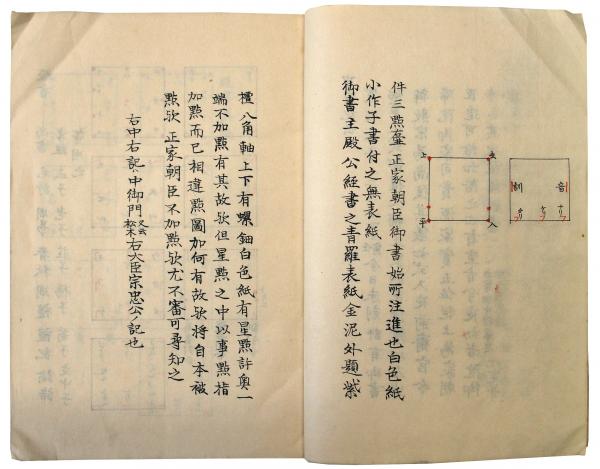 音 訓
ナリ ケリ カリ
去 上
入 平
件三點臺正家朝臣御書始所注進也白色紙
小作子書付之無表紙
御書主殿公経書之青羅表紙金泥外題紫
檀八角軸上下有螺鈿白色紙有星點許奥一
端不加點有其故欤但星點之中以事點指
加點而已相違點圖如何有故欤将自本被
點欤正家朝臣不加點欤尤不審可尋知之
右中右記中御門又云松木右大臣宗忠公ノ記也